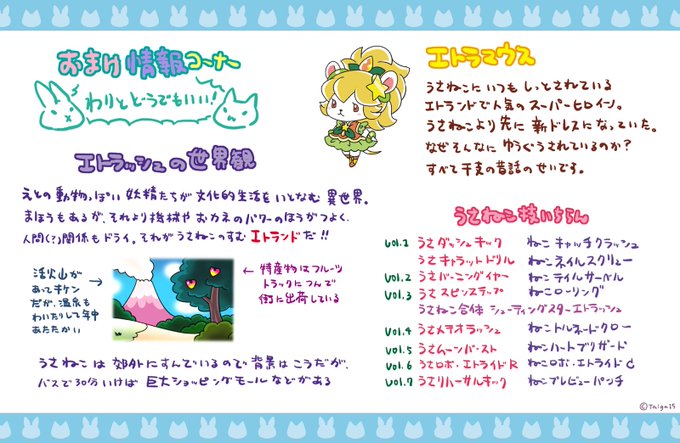 おまけ情報コーナー
わりとどうでもいい!
エトラッシュの世界観
えとの動物っぽい妖精たちが文化的生活をいとなむ異世界。
まほうもあるが、それより機械やおカネのパワーのほうがつよく、
人間(?)関係もドライ。それがうさねこのすむエトランドだ!!
活火山が
あってキケン
だが、温泉も
わいたりして年中
あたたかい
← 特産物はフルーツ
トラックにつんで
街に出荷している
うさねこは郊外にすんでいるので背景はこうだが、
バスで30分いけば巨大ショッピングモールなどがある
エトラマウス
うさねこにいつもしっとされている
エトランドで人気のスーパーヒロイン。
うさねこより先に新ドレスになっていた。
なぜそんなにゆうぐうされているのか?
すべて干支の昔話のせいです。
うさねこ技いちらん
vol.1 うさダッシュキック ねこキャッチクラッシュ
うさキャラットドリル ねこネイルスクリュー
vol.2 うさバーニングイヤー ねこテイルサーベル
vol.3 うさスピンステップ ねこローリング
うさねこ合体 シューティングスターエトラッシュ
vol.4 うさメテオラッシュ ねこトルネードクロー
vol.5 うさムーンバースト ねこハートブリザード
vol.6 うさロボ・エトライドR ねこロボ・エトライドC
vol.7 うさリハーサルキック ねこプレビューパンチ
©Taiga15